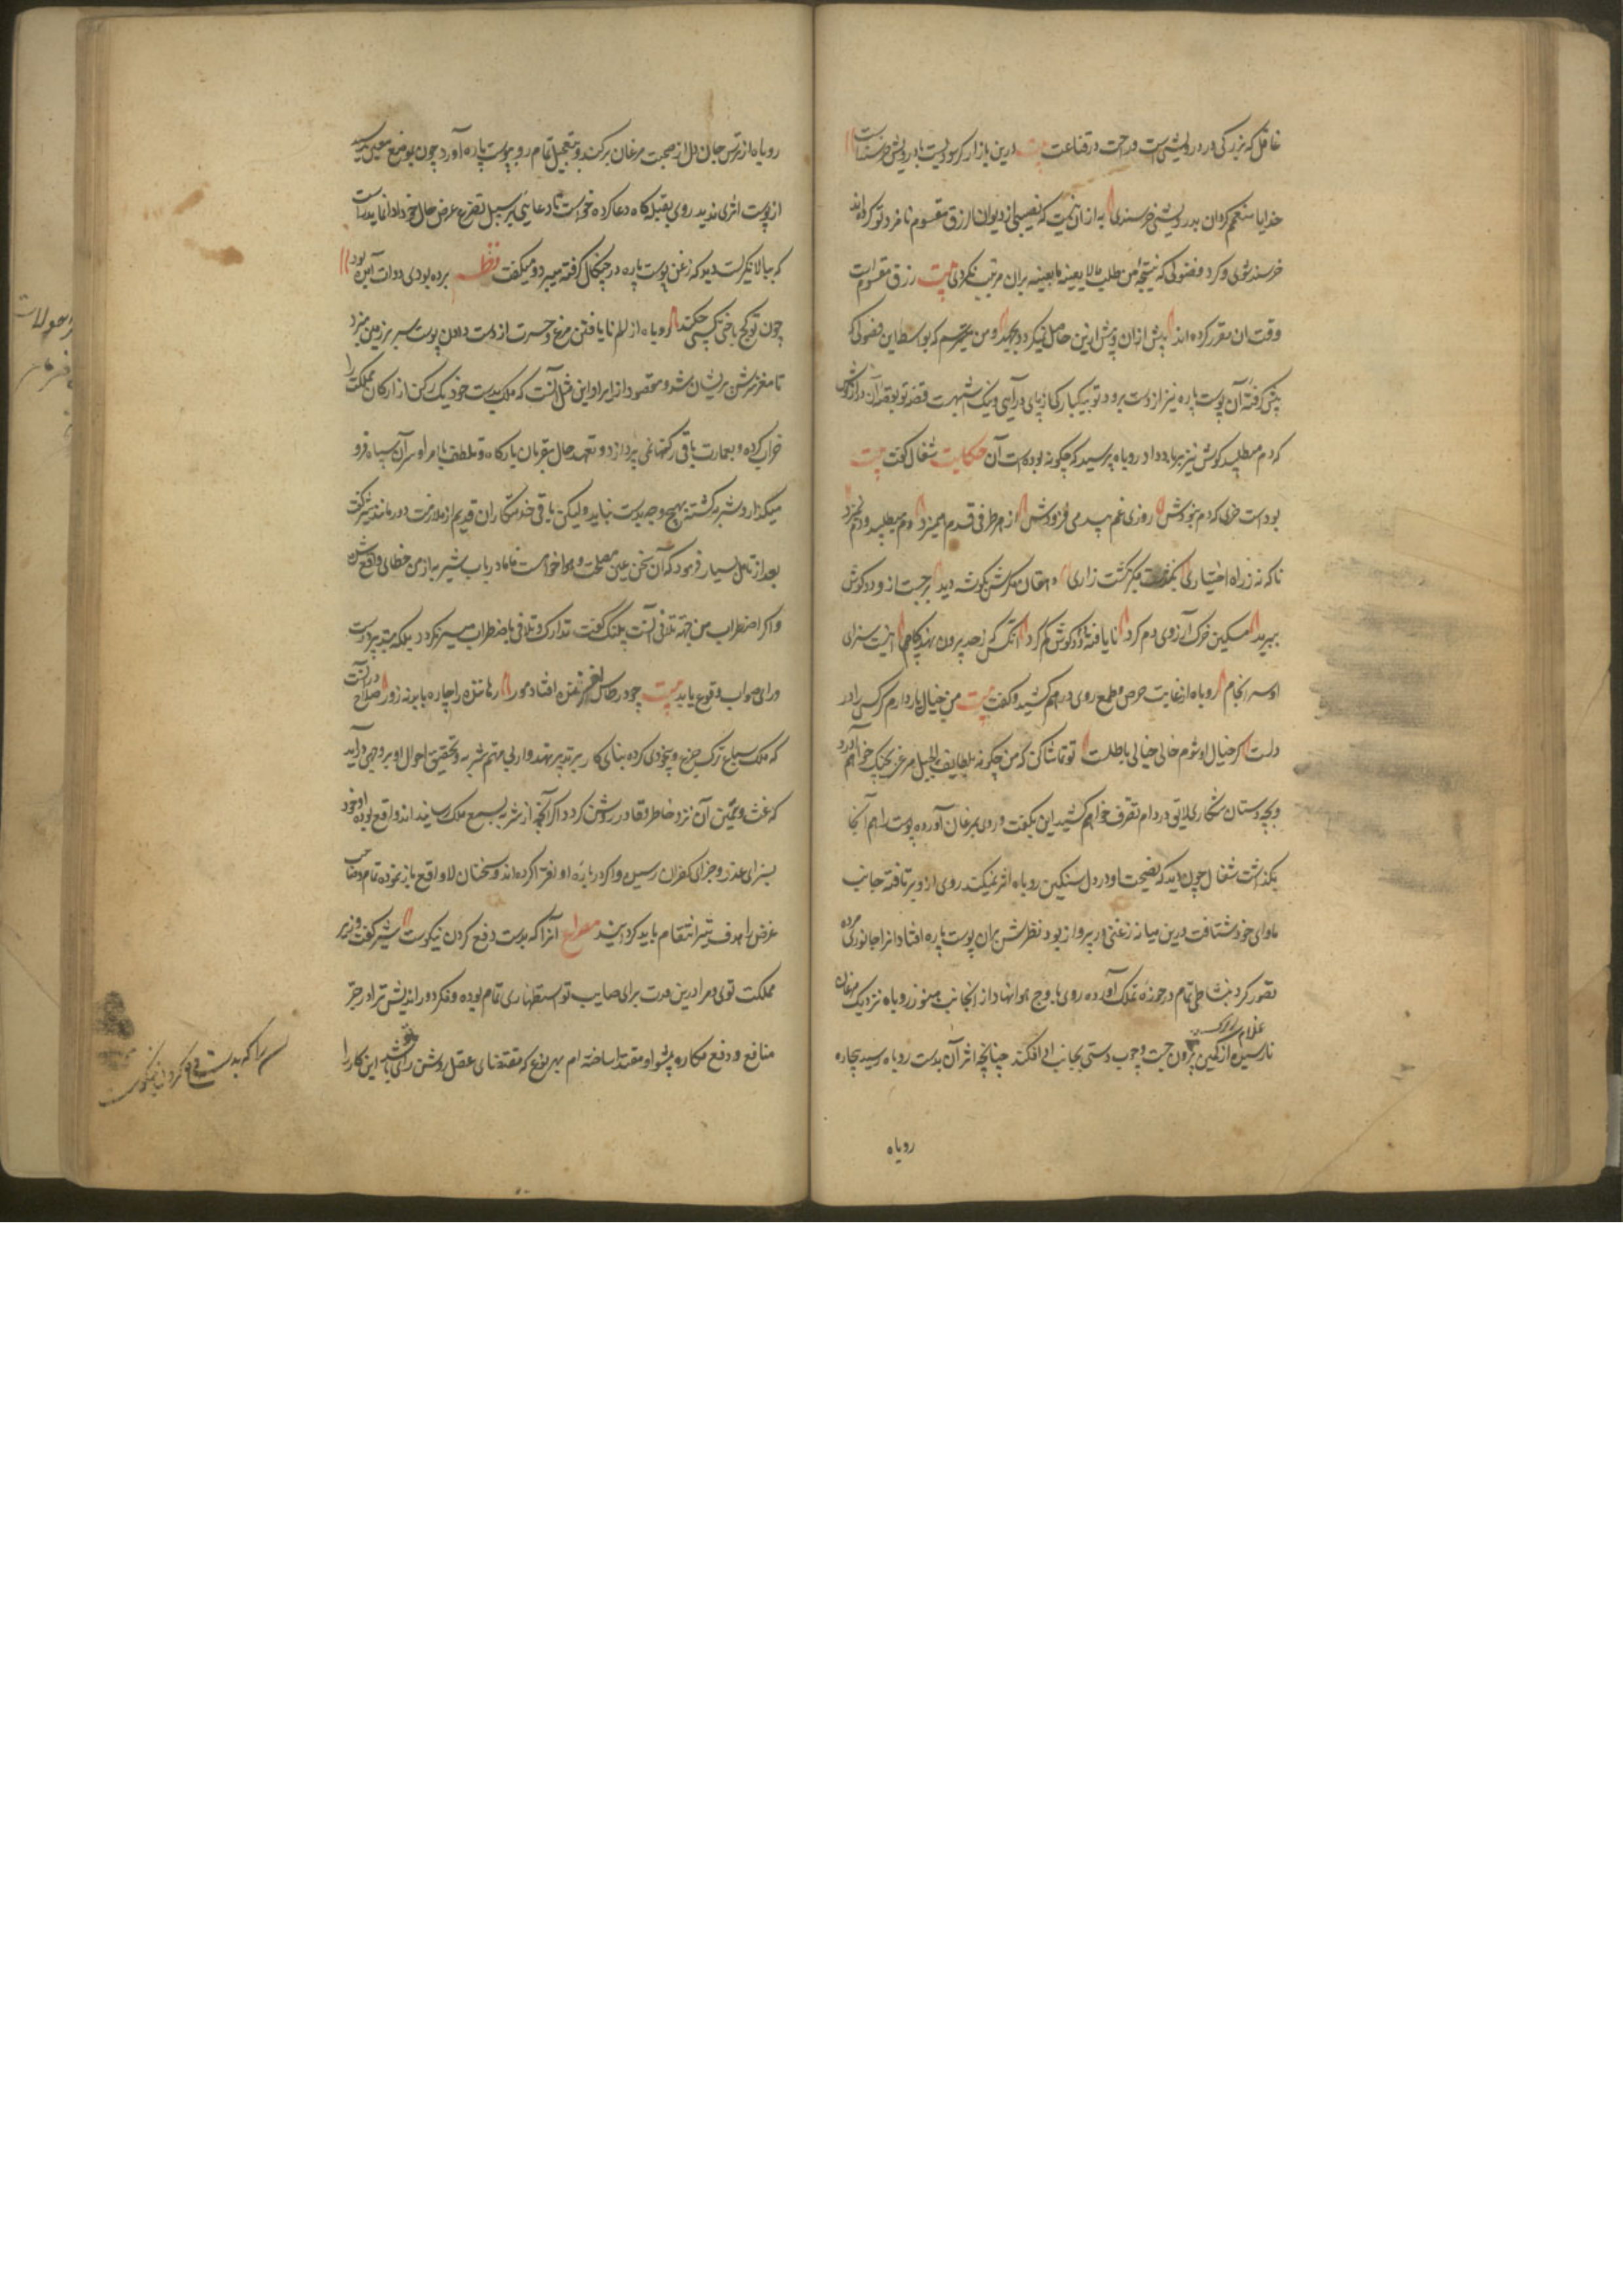 غافل که بزرگی در درویشی است و راحت در قناعت بیت درین بازار اگر سودیست با درویش خرسندست
خدایا منعمم گردان بدرویشی و خرسندی به ازان نیست که بنصیبی از دیوان الرزق مقسوم نامزد تو کرده‌اند
خرسند شوی و گرد فضولی که نتیجه من طلب مالا یعنیه فاته ما یعنیه بران مرتب نگردی بیت رزق مقسوم است
وقت آن مقرر کرده‌اند بیش ازان و پیش ازین حاصل نمیگردد بجهد و من میترسم که بواسطه این فضولی که
پیش گرفته آن پوست پاره نیز از دست برود و تو بیکبارگی از پای درآیی و نیک شبیهست قصه تو بقصه آن درازگوش
که دم میطلبید گوش نیز بر باد داد روباه پرسید که چگونه بوده است آن حکایت شغال گفت بیت
بودست خری که دم نبودش روزی غم بیدمی فزودش از هر طرفی قدم همیزد دم میطلبید و دم نمیزد
ناگه نه ز راه اختیاری بگذشت میان کشت زاری دهقان مگرش ز گوشه دید برجست و ازو دو گوش
ببرید مسکین خرک آرزوی دم کرد نایافته دم دو گوش گم کرد آنکس که ز حد برون نهد گام اینست سزای
او سرانجام روباه از غایت حرص و طمع روی درهم کشید و گفت بیت من خیال یار دارم گر کسی را در
دلست کز خیال او شوم خالی خیالی باطلست تو تماشا کن که من چگونه بلطایف الحیل مرغی بچنگ خواهم آورد
و بچه دستان شکاری لایق در دام تصرف خواهم کشید این بگفت و روی بمرغان آورده پوست را هم آنجا
بگذاشت شغال چون دید که نصیحت او در دل سنگین روباه اثر نمیکند روی ازو بر تافته جانب
ماوای خود شتافت درین میانه زغنی در پرواز بود نظرش بران پوست پاره افتاد انرا جانوری مرده
تصور کرد بنشاط تمام در حوزه تملک آورده روی باوج هوا نهاد از آنجانب هنوز روباه نزدیک مرغان
نارسیده از کمین بیرون جست و چوب دستی بجانب او افکند چنانچه اثر آن بدست روباه رسید بیچاره
غلام
روباه
روباه از ترس جان دل از صحبت مرغان برکند و بتعجیل تمام رو بپوست پاره آورد چون بموضع معین رسید
از پوست اثری ندید روی بقبله‌گاه دعا کرده خواست تا دعایی بر سبیل تضرع عرض حال خود ادا نماید راست
که ببالا نگریست دید که زغن پوست پاره در چنگال گرفته میبرد و میگفت نظم برده بودی و داوت آمن بود
چون تو کج باختی کسی چکند روباه از الم نایافتن مرغ و حسرت از دست دادن پوست سر بر زمین میزد
تا مغز سرش پریشان شد و مقصود از ایراد این مثل آنست که ملک بدست خود یک رکن از ارکان مملکت را
خراب کرده و بعمارت باقی رکنها نمی پردازد و تعهد حال مقربان بارگاه و تلطف با امرا و سران سپاه فرو
میگذارد و شتربه کشته بهیچ وجه بدست نیاید ولیکن باقی خدمتکاران قدیم از ملازمت دور مانند شیر گفت
بعد از تامل بسیار فرمود که آن سخن عین مصلحت و هواخواهیست اما در باب شتربه از من خطایی واقع شده
و اکثر اضطراب من بجهة تلافی آنست پلنگ گفت تدارک و تلافی باضطراب میسر نگردد بلکه بتدبیر درست
و رای صواب وقوع یابد بیت چو در طاس لغزنده افتاد مور رهاننده را چاره باید نه زور صلاح در آنست
که ملک سباع ترک جزع و بیخودی کرده بنای کار بر تدبیر نهد و از پی مهم شتربه و تحقیق احوال او بر وجهی درآید
که غث و سمین آن نزد خاطر وقاد روشن گردد اگر آنچه از شتربه بسمع ملک رسانیده‌اند واقع بوده او خود
بسزای غدر و جزای کفران رسیده و اگر درباره او افترا کرده‌اند و سخنان لا واقع باز نموده تمام و صاحب
غرض را هدف تیر انتقام باید گردانید مصراع آنرا که بدست دفع کردن نیکوست شیر گفت وزیر
مملکت توی و مرا درین مدت برای صایب تو استظهاری تمام بوده و فکر دوراندیش ترا در جر
منافع و دفع مکاره پیشوا و مقتدا ساخته‌ام بهر نوع که مقتضای عقل روشن رای باشد این کار را
را که بدست دفع کردن نیکوست